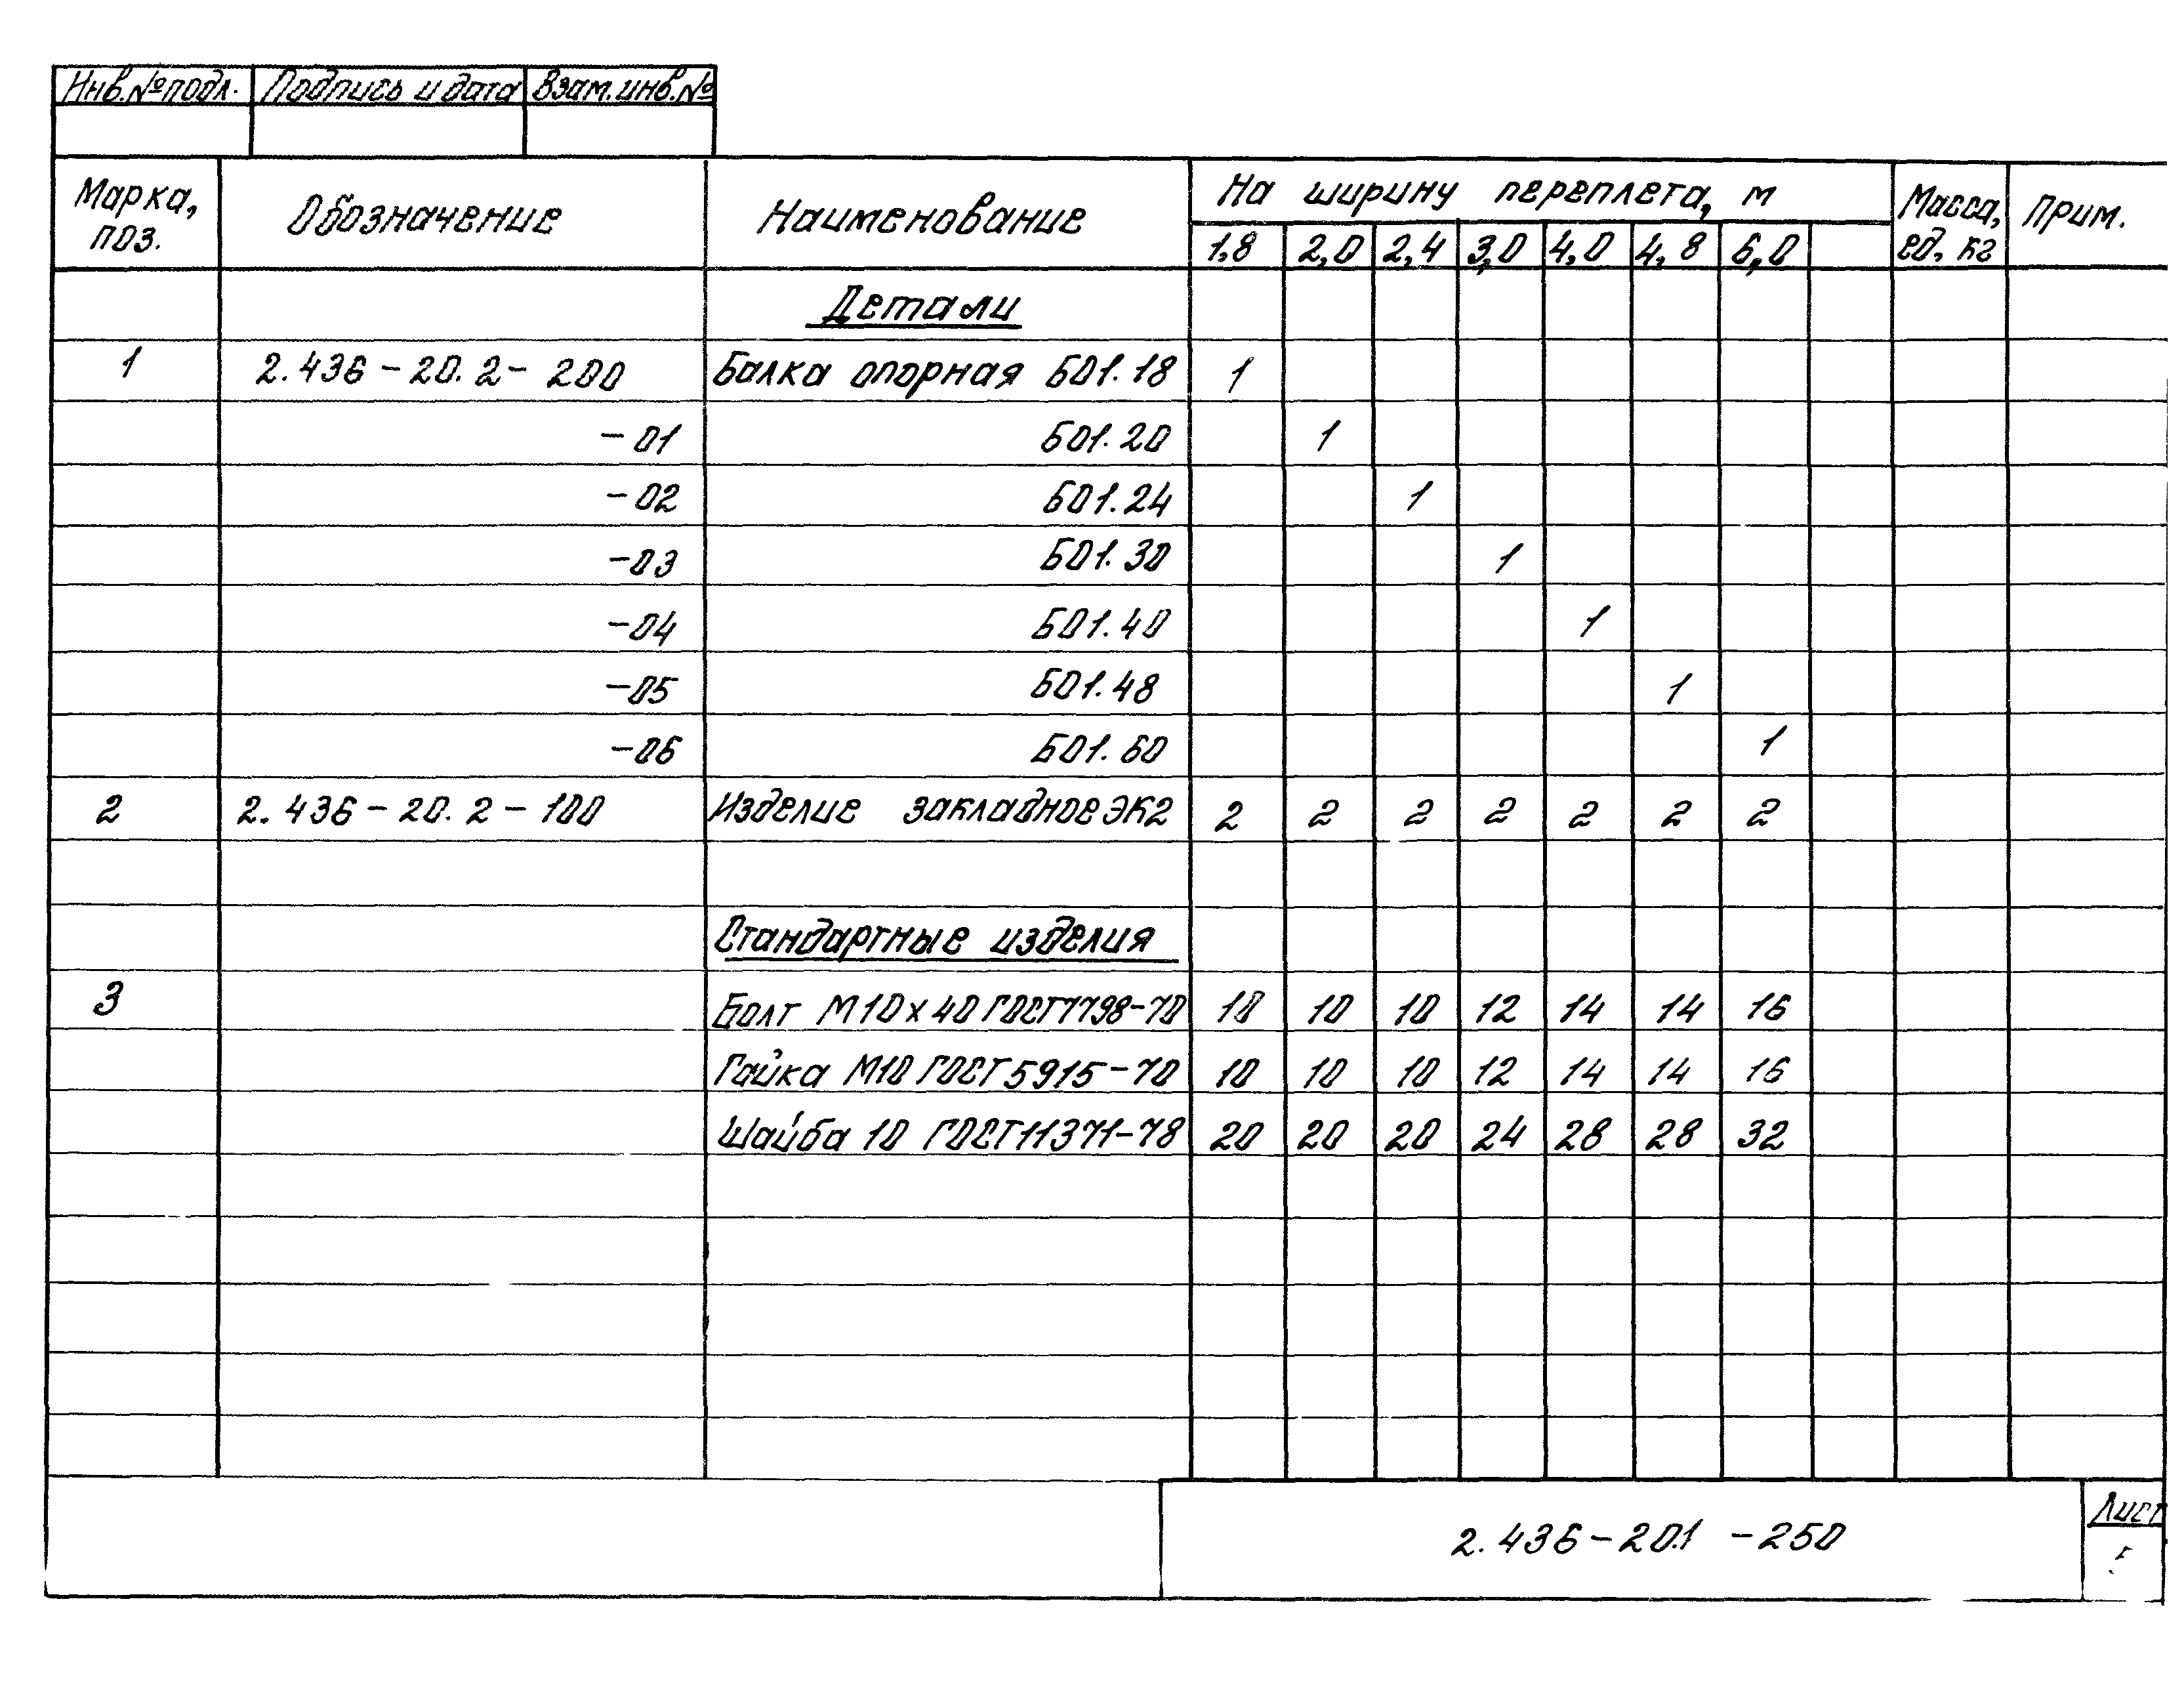 Инв.№подл. Подпись и дата Взам.инв.№
Марка, поз. Обозначение Наименование На ширину переплета, м Масса, ед. кг Прим.
1,8 2,0 2,4 3,0 4,0 4,8 6,0
Детали
1 2.436-20.2-200 Балка опорная БО1.18 1
-01 БО1.20 1
-02 БО1.24 1
-03 БО1.30 1
-04 БО1.40 1
-05 БО1.48 1
-06 БО1.60 1
2 2.436-20.2-100 Изделие закладное ЭК2 2 2 2 2 2 2 2
Стандартные изделия
3 Болт М10х40 ГОСТ7798-70 10 10 10 12 14 14 16
Гайка М10 ГОСТ5915-70 10 10 10 12 14 14 16
Шайба 10 ГОСТ11371-78 20 20 20 24 28 28 32
2.436-20.1 -250
Лист